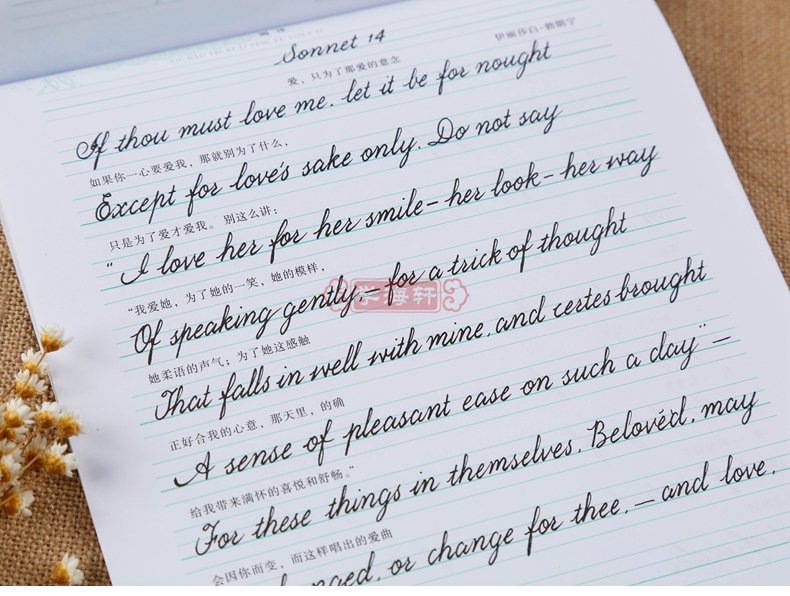 Sonnet 14
伊丽莎白·勃朗宁
爱，只为了那爱的意念
If thou must love me, let it be for nought
如果你一心要爱我，那就别为了什么，
Except for love's sake only. Do not say
只是为了爱才爱我。 别这么讲：
"I love her for her smile—her look—her way
“我爱她，为了她的一笑，她的模样，
Of speaking gently,—for a trick of thought
学海轩
她柔语的声气；为了她这感触
That falls in well with mine, and certes brought
正好合我的心意，那天里，的确
A sense of pleasant ease on such a day"—
给我带来满怀的喜悦和舒畅。”
For these things in themselves, Belovèd, may
会因你而变，而这样唱出的爱曲
or change for thee,—and love,